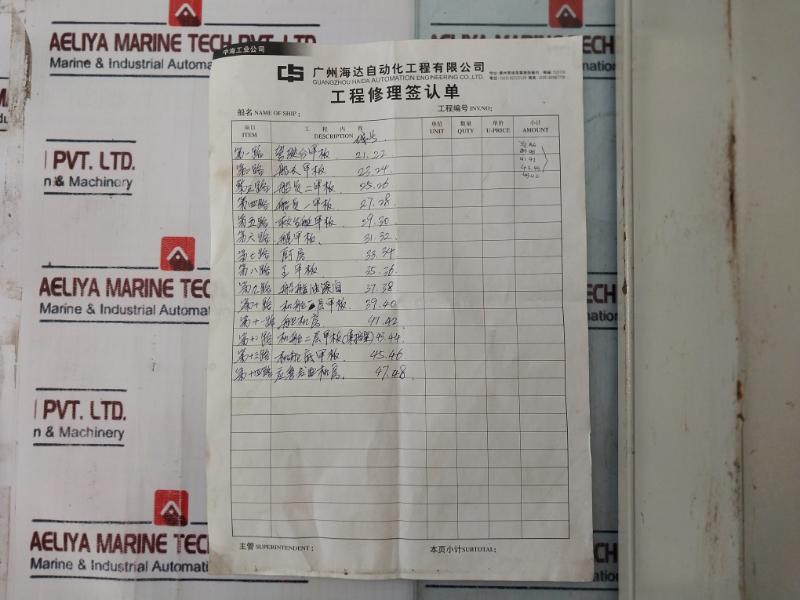 AELIYA MARINE TECH PVT. LTD.
Marine & Industrial Automa
PVT. LTD.
n & Machinery
AELIYA MARINE TEC
Marine & Industrial Automat
PVT. LTD.
n & Machinery
AELIYA MARINE TECH
Marine & Industrial Automati
广州海达自动化工程有限公司
GUANGZHOU HAIDA AUTOMATION ENGINEERING CO.,LTD.
工程修理签认单
船名 NAME OF SHIP: 工程编号 INV.NO:
项目 工程内容 单位 数量 单价 小计
ITEM DESCRIPTION 编号 UNIT QUTY U-PRICE AMOUNT
第一路 驾驶台甲板 21.22
第二路 船长甲板 23.24
第三路 船员二甲板 25.26
第四路 船员一甲板 27.28
第五路 救生艇甲板 29.30
第六路 艉甲板 31.32
第七路 厨房 33.34
第八路 主甲板 35.36
第九路 37.38
第十路 机舱一层甲板 39.40
第十一路 舵机房 41.42
第十二路 机舱二层甲板 43.44
第十三路 机舱底甲板 45.46
第十四路 应急发电机房 47.48
主管 SUPERINTENDENT: 本页小计SUBTOTAL: